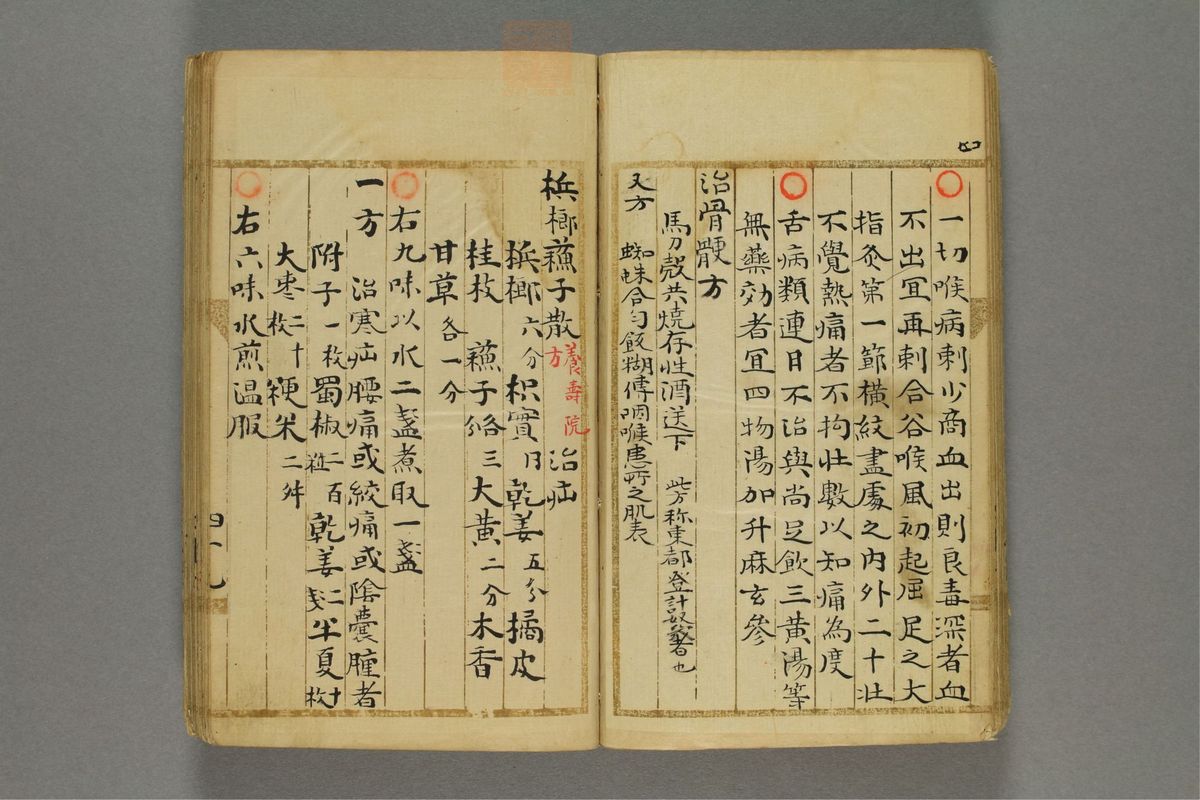 一切喉病刺少商血出則良毒深者血
不出冝再刺合谷喉風初起屈足之大
指灸第一節横紋盡處之内外二十壯
不覺熱痛者不拘壯數以知痛為度
舌病類連日不治與尚足飲三黄湯等
無藥効者冝四物湯加升麻玄參
治骨骾方
馬刀殼共燒存性酒送下 此方称東都登計奴散者也
又方 蜘蛛合勻飯糊傳咽喉患所之肌表
梹榔蘓子散 養壽院方 治疝
梹榔六分 枳實 乾姜五分 橘皮
桂枝 蘓子各三 大黄二分 木香
甘草各一分
右九味以水二盞煮取一盞
一方 治寒疝腰痛或絞痛或陰嚢腫者
附子一枚 蜀椒二百粒 乾姜二戔 半夏十枚
大枣二十枚 粳米二舛
右六味水煎温服
四十九